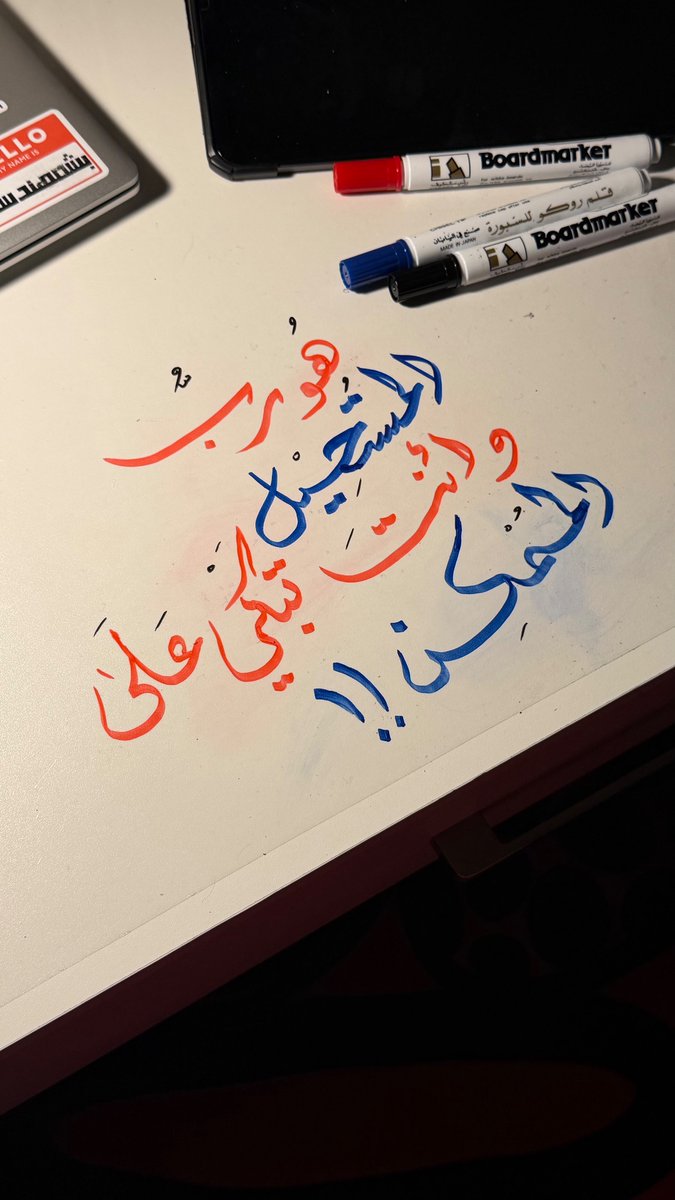 LLO
MY NAME IS
بشمهندس
Boardmarker
قلم روكو للسبورة
صنع في اليابان
MADE IN JAPAN
Boardmarker
هُو ربٌ
المُستحيْل
و أنتَ
تَبْكي عَلىَ
المُمكِن !!